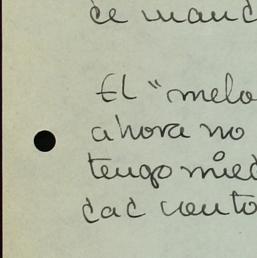 ce mand
El "melo
ahora no
tengo mied
dad vento